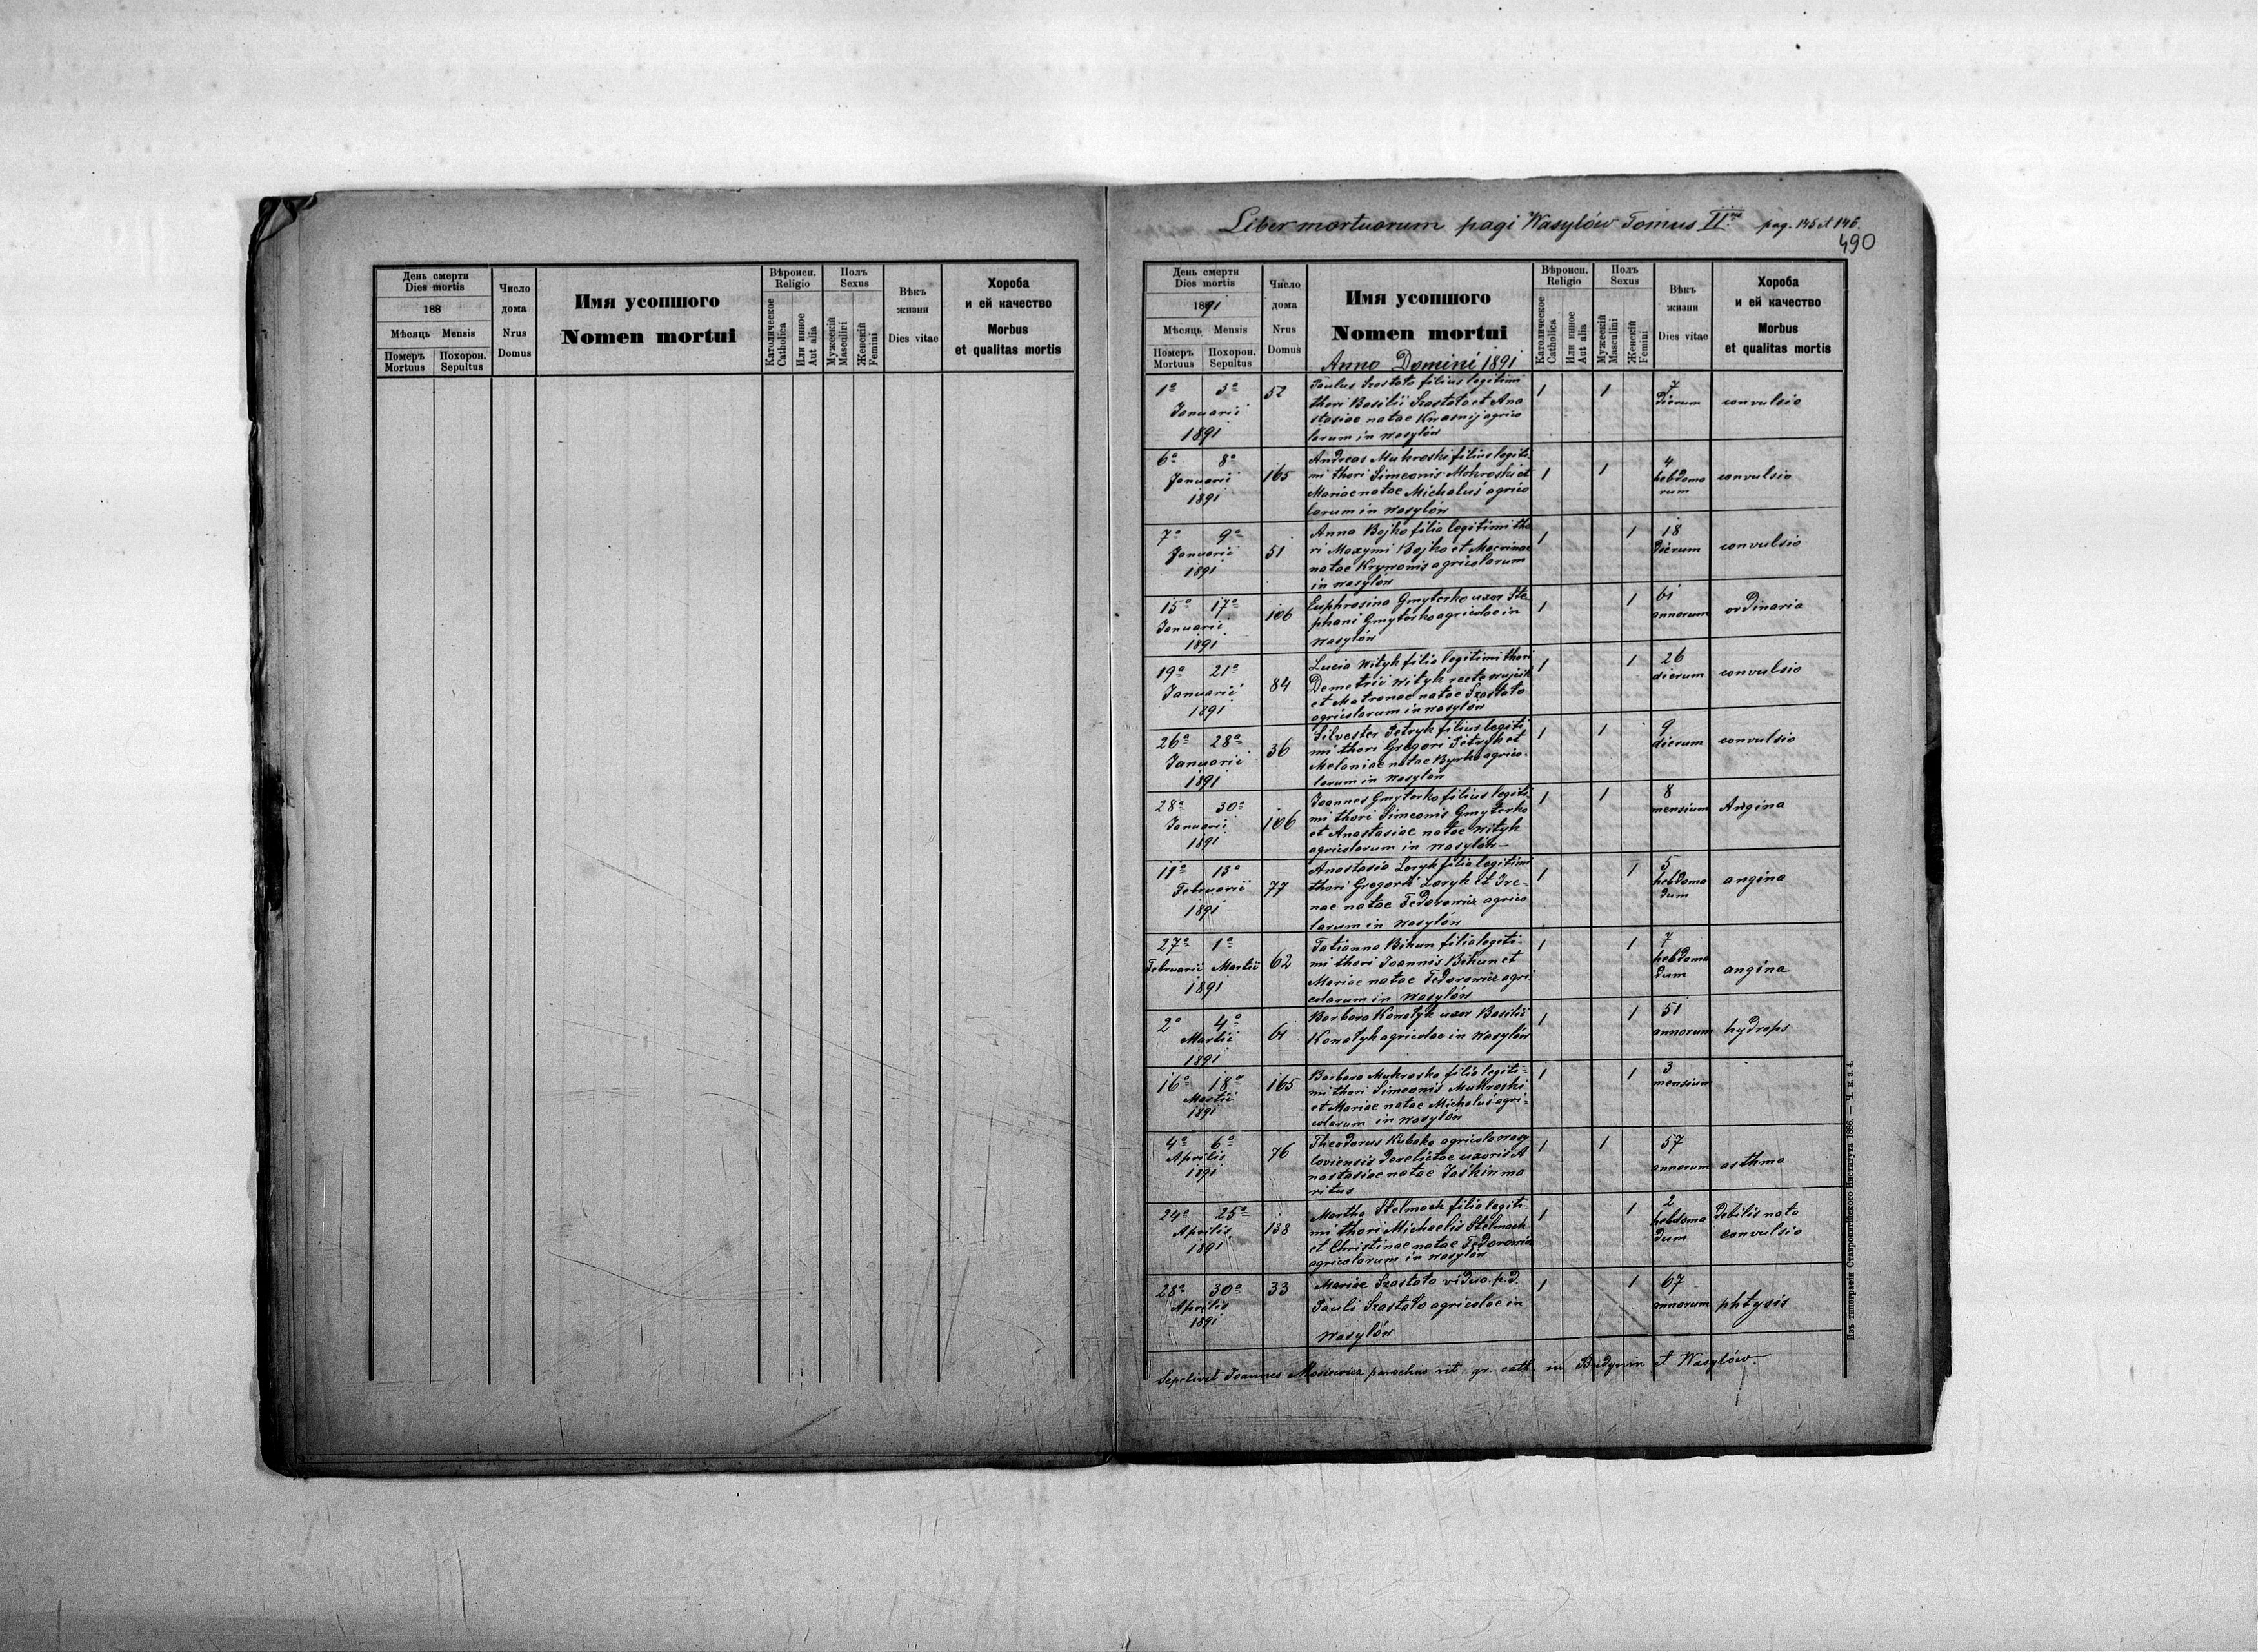 Liber mortuorum pagi Wasylów Tomus II. pag. 145 et 146.
490
День смерти
Dies mortis
188
Мѣсяць Mensis
Померъ Mortuus
Похорон. Sepultus
Число дома
Nrus Domus
Имя усопшого
Nomen mortui
Вѣроисп.
Religio
Католическое Catholica
Или инное Aut alia
Полъ
Sexus
Мужескій Masculini
Женскій Femini
Вѣкъ жизни
Dies vitae
Хороба
и ей качество
Morbus
et qualitas mortis
День смерти
Dies mortis
1891
Мѣсяць Mensis
Померъ Mortuus
Похорон. Sepultus
Число дома
Nrus Domus
Имя усопшого
Nomen mortui
Anno Domini 1891
Вѣроисп.
Religio
Католическое Catholica
Или инное Aut alia
Полъ
Sexus
Мужескій Masculini
Женскій Femini
Вѣкъ жизни
Dies vitae
Хороба
и ей качество
Morbus
et qualitas mortis
1a 3a
Januarii
1891
52
Paulus Szostato filius legitimi
thori Basilii Szastato et Ana
stasiae natae Krasnij agrico
larum in Wasylów
1 1
7
dierum
convulsio
6a 8a
Januarii
1891
165
Andreas Mukroski filius legiti
mi thori Simeonis Mokroski et
Mariae natae Michaluś agrico
larum in Wasylów
1 1
4
hebdoma
rum
convulsio
7a 9a
Januarii
1891
51
Anna Bojko filia legitimi tho
ri Maxymi Bojko et Macrinae
natae Krywonis agricolarum
in Wasylów
1 1
18
dierum
convulsio
15a 17a
Januarii
1891
106
Euphrosina Gmyterko uxor Ste
phani Gmyterko agricolae in
Wasylów
1 1
61
annorum
ordinaria
19a 21a
Januarii
1891
84
Lucia Wityk filia legitimi thori
Demetrii Wityk recte Wujcik
et Matronae natae Szastato
agricolarum in Wasylów
1 1
26
dierum
convulsio
26a 28a
Januarii
1891
36
Silvester Petryk filius legiti
mi thori Gregori Petryk et
Melaniae natae Byrko agrico
larum in Wasylów
1 1
9
dierum
convulsio
28a 30a
Januarii
1891
106
Joannes Gmyterko filius legiti
mi thori Simeonis Gmyterko
et Anastasiae natae Wityk
agricolarum in Wasylów
1 1
8
mensium
Angina
11a 13a
Februarii
1891
77
Anastasia Loryk filia legitimi
thori Gregorii Loryk et Ire-
nae natae Fedorowicz agrico
larum in Wasylów
1 1
5
hebdoma
dum
angina
27a 1a
Februarii Martii
1891
62
Tatianna Bihun filia legiti-
mi thori Joannis Bihun et
Mariae natae Fedorowicz agri
colarum in Wasylów
1 1
7
hebdoma
dum
angina
2a 4a
Martii
1891
61
Barbara Konatyk uxor Basilii
Konatyk agricolae in Wasylów
1 1
51
annorum
hydrops
16a 18a
Martii
1891
165
Barbara Mukroska filia legiti-
mi thori Simeonis Mukroski
et Mariae natae Michaluś agri-
colarum in Wasylów
1 1
3
mensium
4a 6a
Aprilis
1891
76
Theodorus Kubako agricola wasy
loviensis derelictae uxoris A
nastasiae natae Jaskin ma
ritus
1 1
57
annorum
asthma
24a 25a
Aprilis
1891
138
Martha Stelmach filia legiti-
mi thori Michaelis Stelmach
et Christinae natae Fedorowicz
agricolarum in Wasylów
1 1
2
hebdoma
dum
debilis nata
convulsio
28a 30a
Aprilis
1891
33
Mariae Szastato vidua p.d.
Pauli Szastato agricolae in
Wasylów
1 1
67
annorum
phtysis
Sepelivit Joannes parochus rit. gr. cath. in Budynin et Wasylów.
Изъ типографіи Ставропигійского Института 1886. — Ч. к. з. 4.